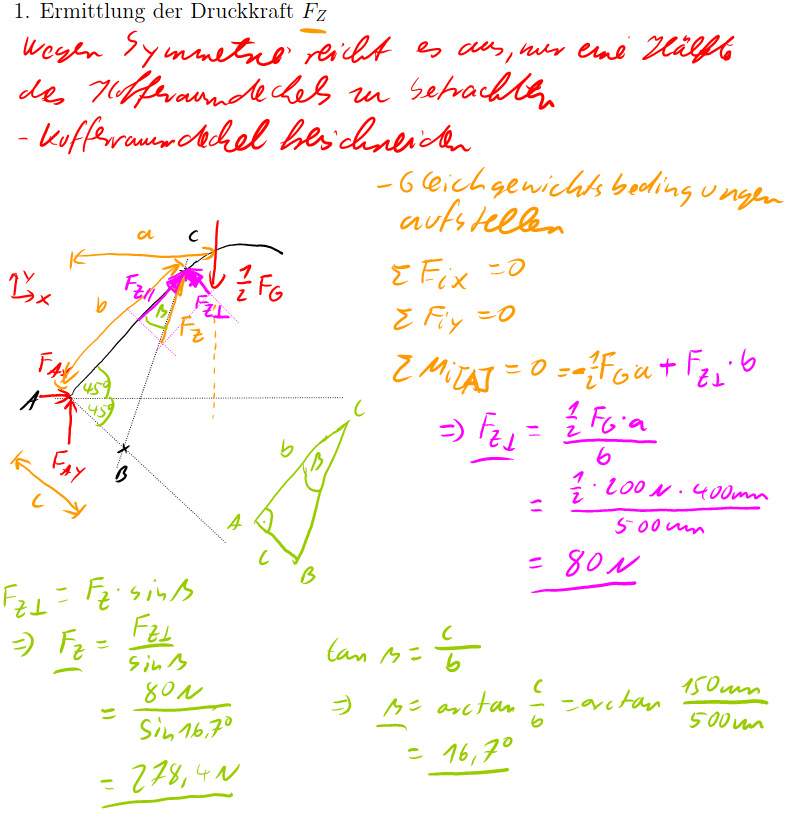 1. Ermittlung der Druckkraft F_Z
Wegen Symmetrie reicht es aus, nur eine Hälfte
des Kofferaumdeckels zu betrachten
- Kofferraumdeckel freischneiden
- Gleichgewichtsbedingungen
aufstellen
a
C
Y
x
b
F_Z||
β
F_Z⊥
F_Z
1/2 F_G
Σ F_ix = 0
Σ F_iy = 0
Σ M_i[A] = 0 = -1/2 F_G a + F_Z⊥ · b
⇒ F_Z⊥ = (1/2 F_G · a) / b
= (1/2 · 200 N · 400 mm) / 500 mm
= 80 N
A
45°
45°
F_AY
B
c
C
b
β
A
c
B
F_Z⊥ = F_Z · sin β
⇒ F_Z = F_Z⊥ / sin β
= 80 N / sin 16,7°
= 278,4 N
tan β = c / b
⇒ β = arctan c / b = arctan 150 mm / 500 mm
= 16,7°